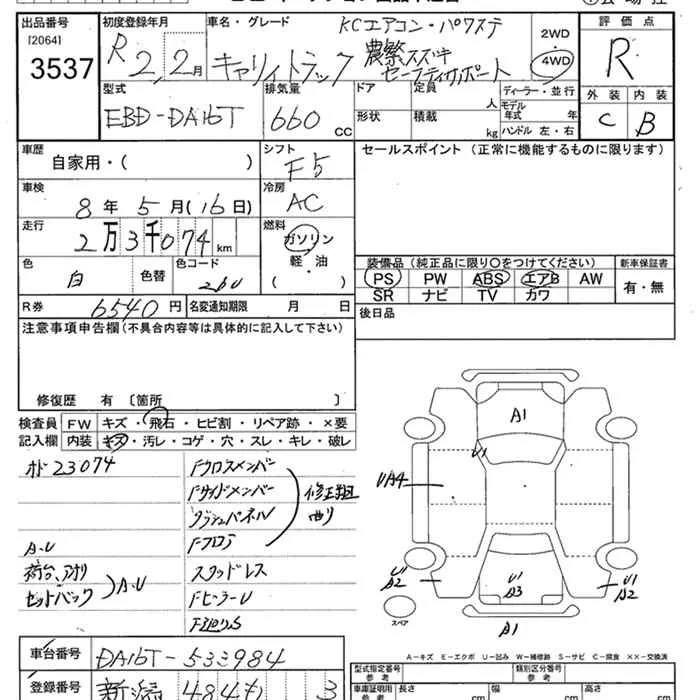 出品番号
[2064]
3537
初度登録年月
R 2, 2月
車名・グレード
KCエアコン・パワステ
キャリイトラック
農繁スズキ
セーフティサポート
2WD
4WD
評価点
R
外装 内装
C B
型式
EBD-DA16T
排気量
660 CC
ドア
形状
定員 人
積載 kg
ディーラー・並行
モデル年式 年
ハンドル 左・右
車歴
自家用・( )
シフト
F5
セールスポイント(正常に機能するものに限ります)
車検
8年 5月(16日)
冷房
AC
走行
2万3千074km
燃料
ガソリン
軽・油
( )
色
白
色替
色コード
26U
装備品(純正品に限り○をつけてください)
PS PW ABS エアB AW
SR ナビ TV カワ
新車保証書
有・無
R券 6540円
名変通知期限 月 日
後日品
注意事項申告欄(不具合内容等は具体的に記入して下さい)
修復歴 有〔箇所 〕
検査員記入欄
FW キズ・飛石・ヒビ割・リペア跡・×要
内装 キズ・汚レ・コゲ・穴・スレ・キレ・破レ
オド23074
A・U
荷台、アオリ
セットバック
A・U
Fクロスメンバー
Fサイドメンバー
ダッシュパネル
Fフロア
修正跡
曲り
スタッドレス
FピラーU
F廻りS
A1
U1
UA4
U1
A2
U1
A3
U1
A2
A1
スペア
A-キズ E-エクボ U-凹み W-補修跡 S-サビ C-腐食 XX-交換済
車台番号 DA16T-533984
登録番号 新潟 484 3
型式指定番号
参考
類別区分番号
参考
車庫証明用
参考
長さ cm
幅 cm
高さ cm